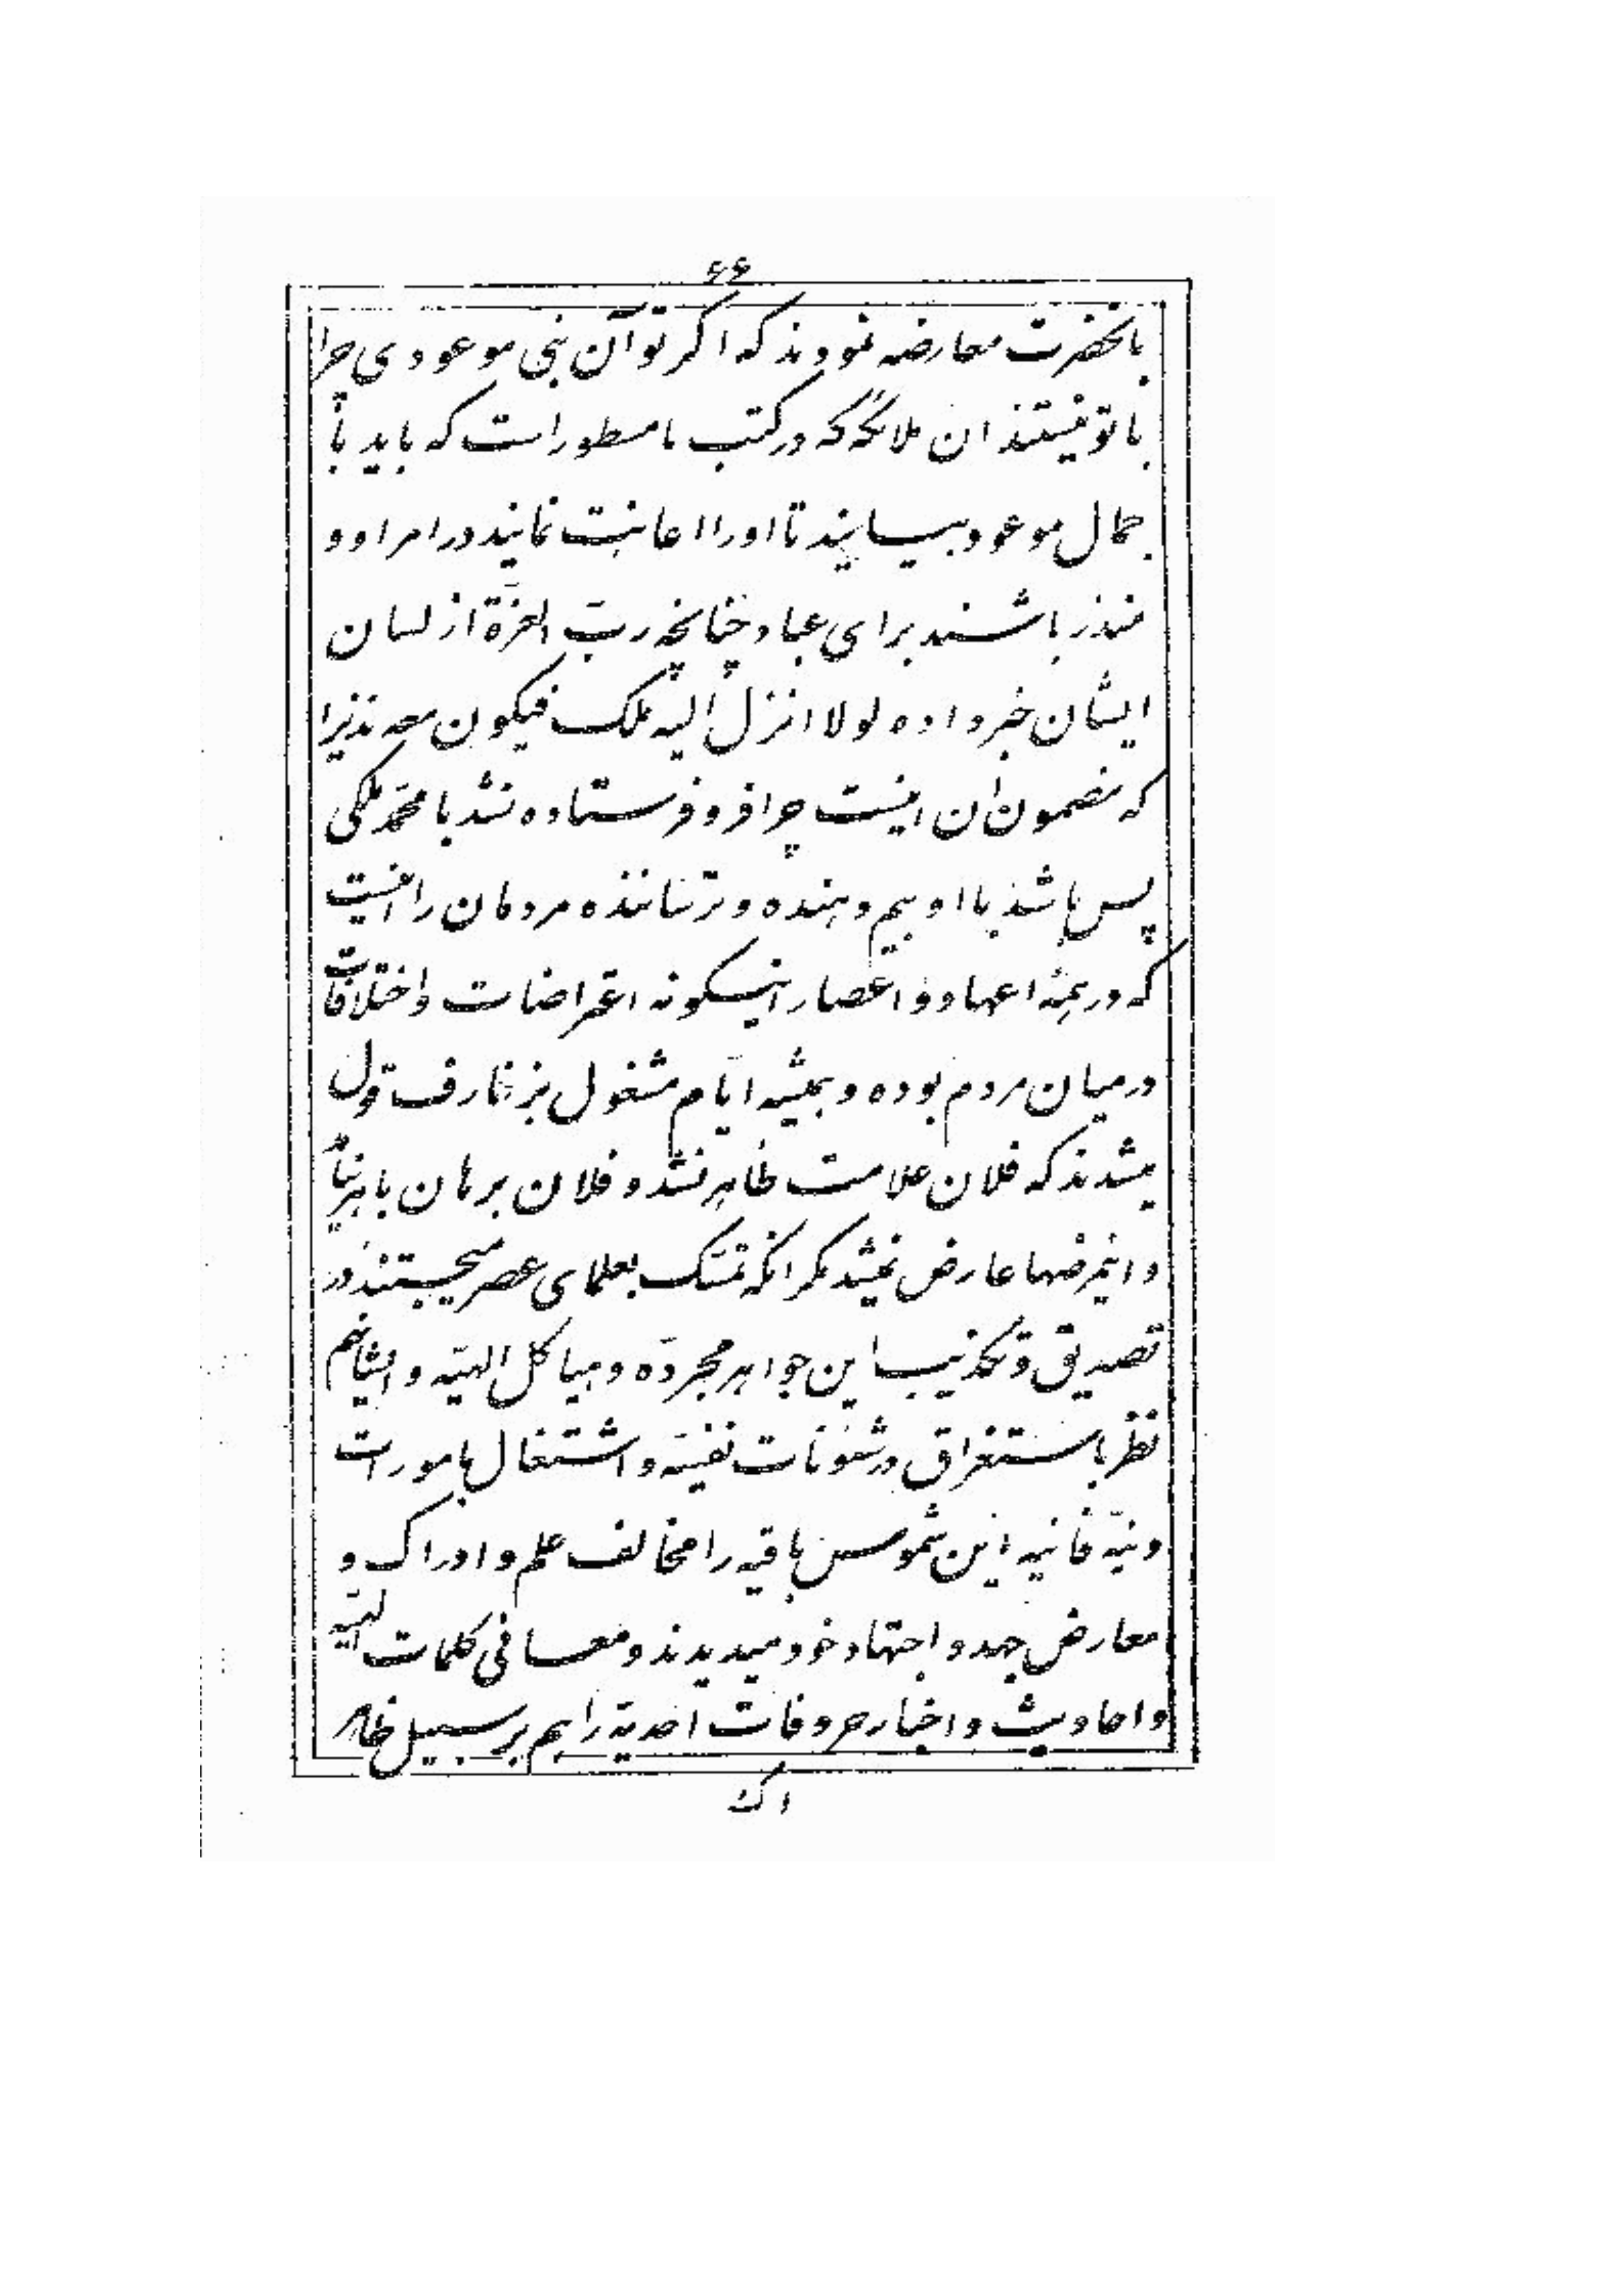 ۶۶
بانحضرت معارضه نمودند که اکر تو آن نبی موعودی چرا
با تو نیستند ان ملائکه که در کتب ما مسطور است که باید با
جمال موعود بیایند تا او را اعانت نمایند در امر او و
منذر باشند برای عباد چنانچه ربّ العزّة از لسان
ایشان خبر داده لولا انزل الیه ملک فیکون معه نذیرا
که مضمون ان اینست چرا فرو فرستاده نشد با محمّد ملکی
پس باشد با او بیم دهنده و ترساننده مردمان را اینست
که در همه اعهاد و اعصار اینکونه اعتراضات و اختلافات
در میان مردم بوده و همیشه ایّام مشغول بزخارف قول
میشدند که فلان علامت ظاهر نشد و فلان برهان باهر نیامد
و اینمرضها عارض نمیشد مکر انکه تمسّک بعلمای عصر میجستند در
تصدیق و تکذیب این جواهر مجرّده و هیاکل الهیّه و ایشانهم
نظر باستغراق در شئونات نفسیّه و اشتغال بامورات
دنیّه فانیه این شموس باقیه را مخالف علم و ادراک و
معارض جهد و اجتهاد خود میدیدند و معانی کلمات الهیّه
و احادیث و اخبار حروفات احدیّه را هم بر سبیل ظاهر